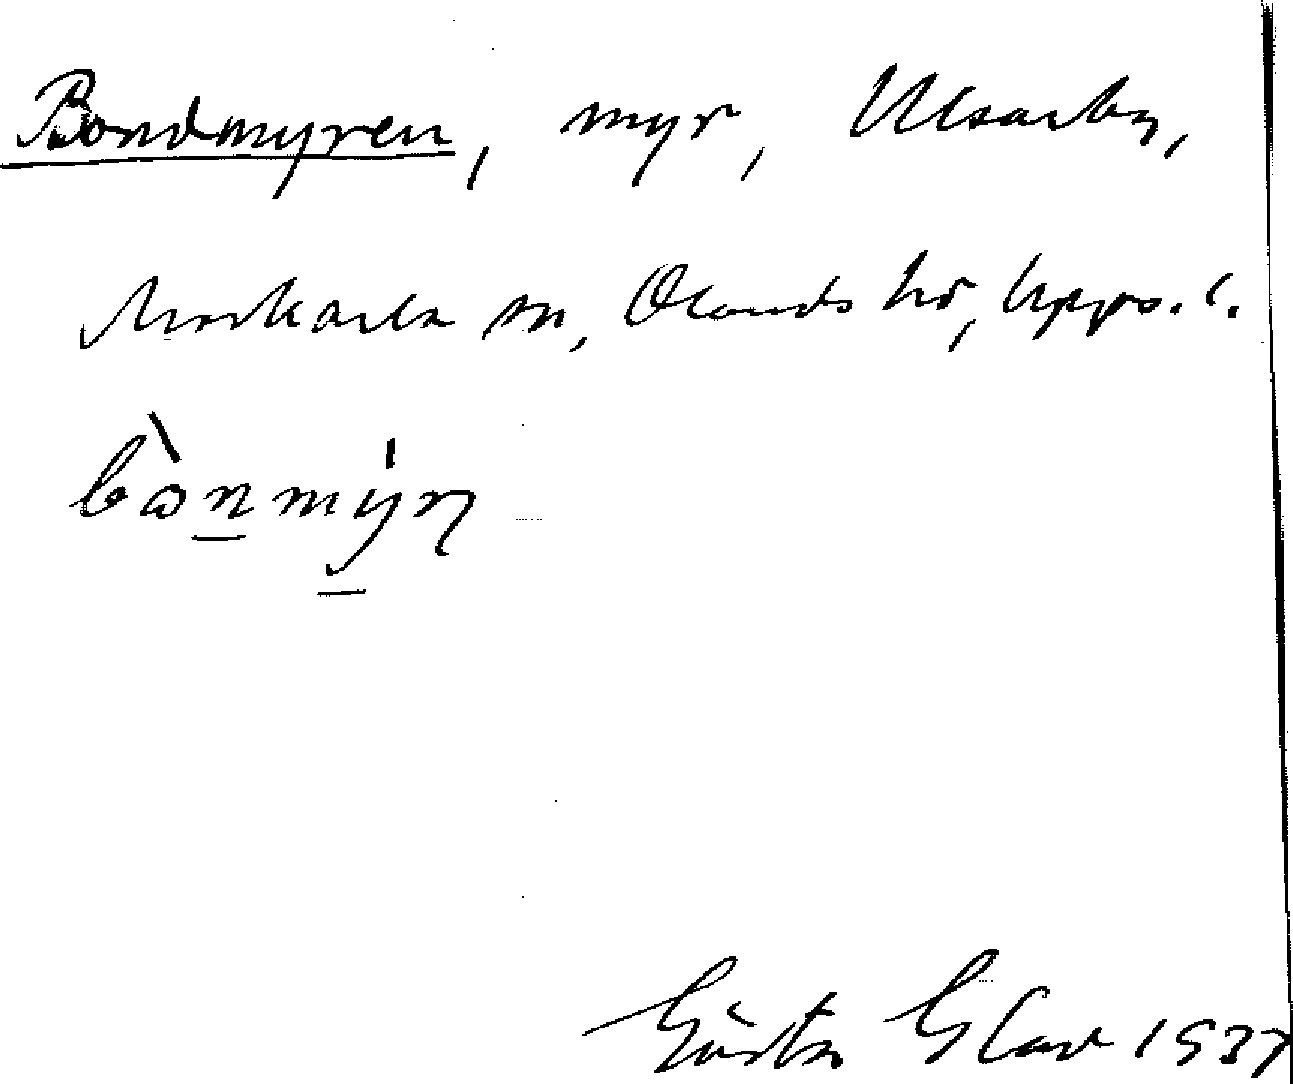 Bondmyren, myr, Ulsarby,
Morkarla sn, Olands hd, Upps. l.
bònmýrn
Gösta Glav 1937